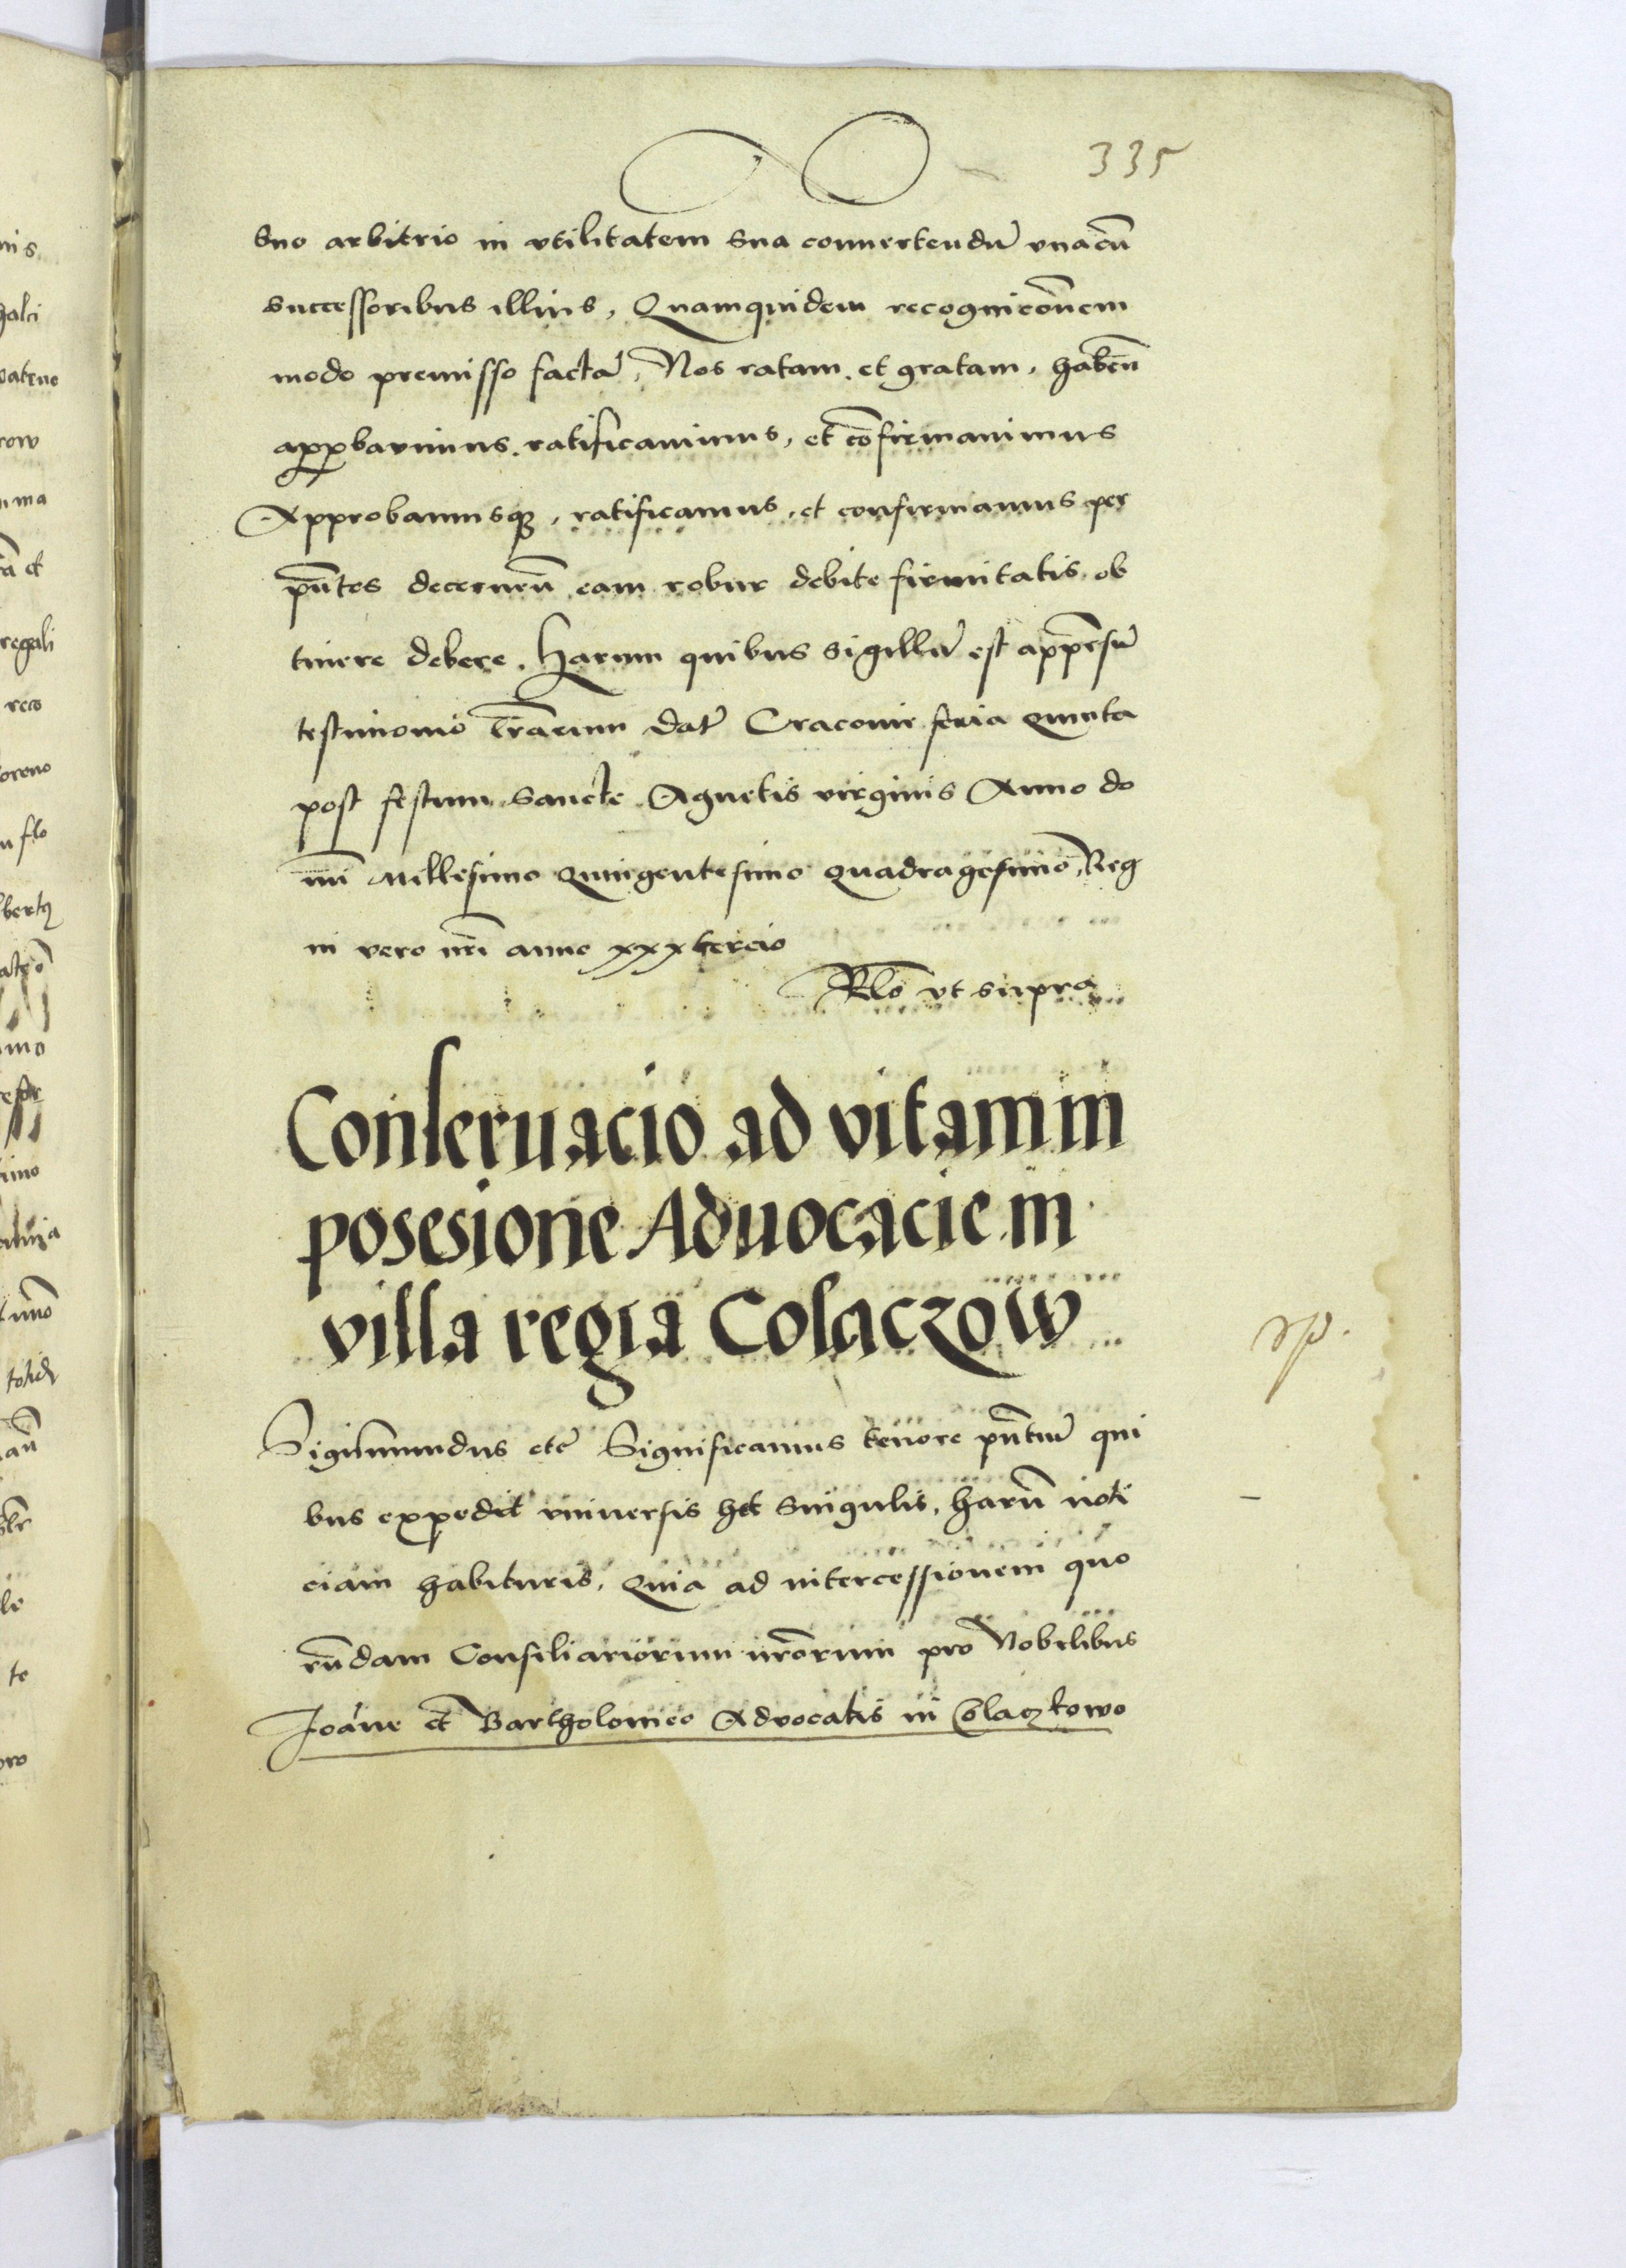 335
suo arbitrio in vtilitatem sua conuertendũ vnacũ
successoribus illius, Quamquidem recognicõnem
modo premisso factã, Nos ratam et gratam, habeñ
approbauimus. ratificauimus, et cõfirmauimus
Approbamusqꝫ, ratificamus, et confirmamus per
pñtes decerneñ eam robur debite firmitatis ob
tinere debere. Harum quibus sigillũ est appensũ
testimonio l̃rarum dat̃ Cracouie feria Quinta
post festum Sancte Agnetis virginis Anno do
mĩ Millesimo Quingentesimo Quadragesimo, Reg
ni vero nr̃i anno xxx tercio
Rl̃o vt supra
Conseruacio ad vitam in
posesione Aduocacie in
villa regia Colaczow
Sigismundus etc̃ Significamus tenore pñtiũ qui
bus expedit vniuersis et singulis, harũ noti
ciam habituris, Quia ad intercessionem quo
rũdam Consiliariorum nr̃orum pro Nobilibus
Joãne et Bartholomeo Aduocatis in Colaczkowo